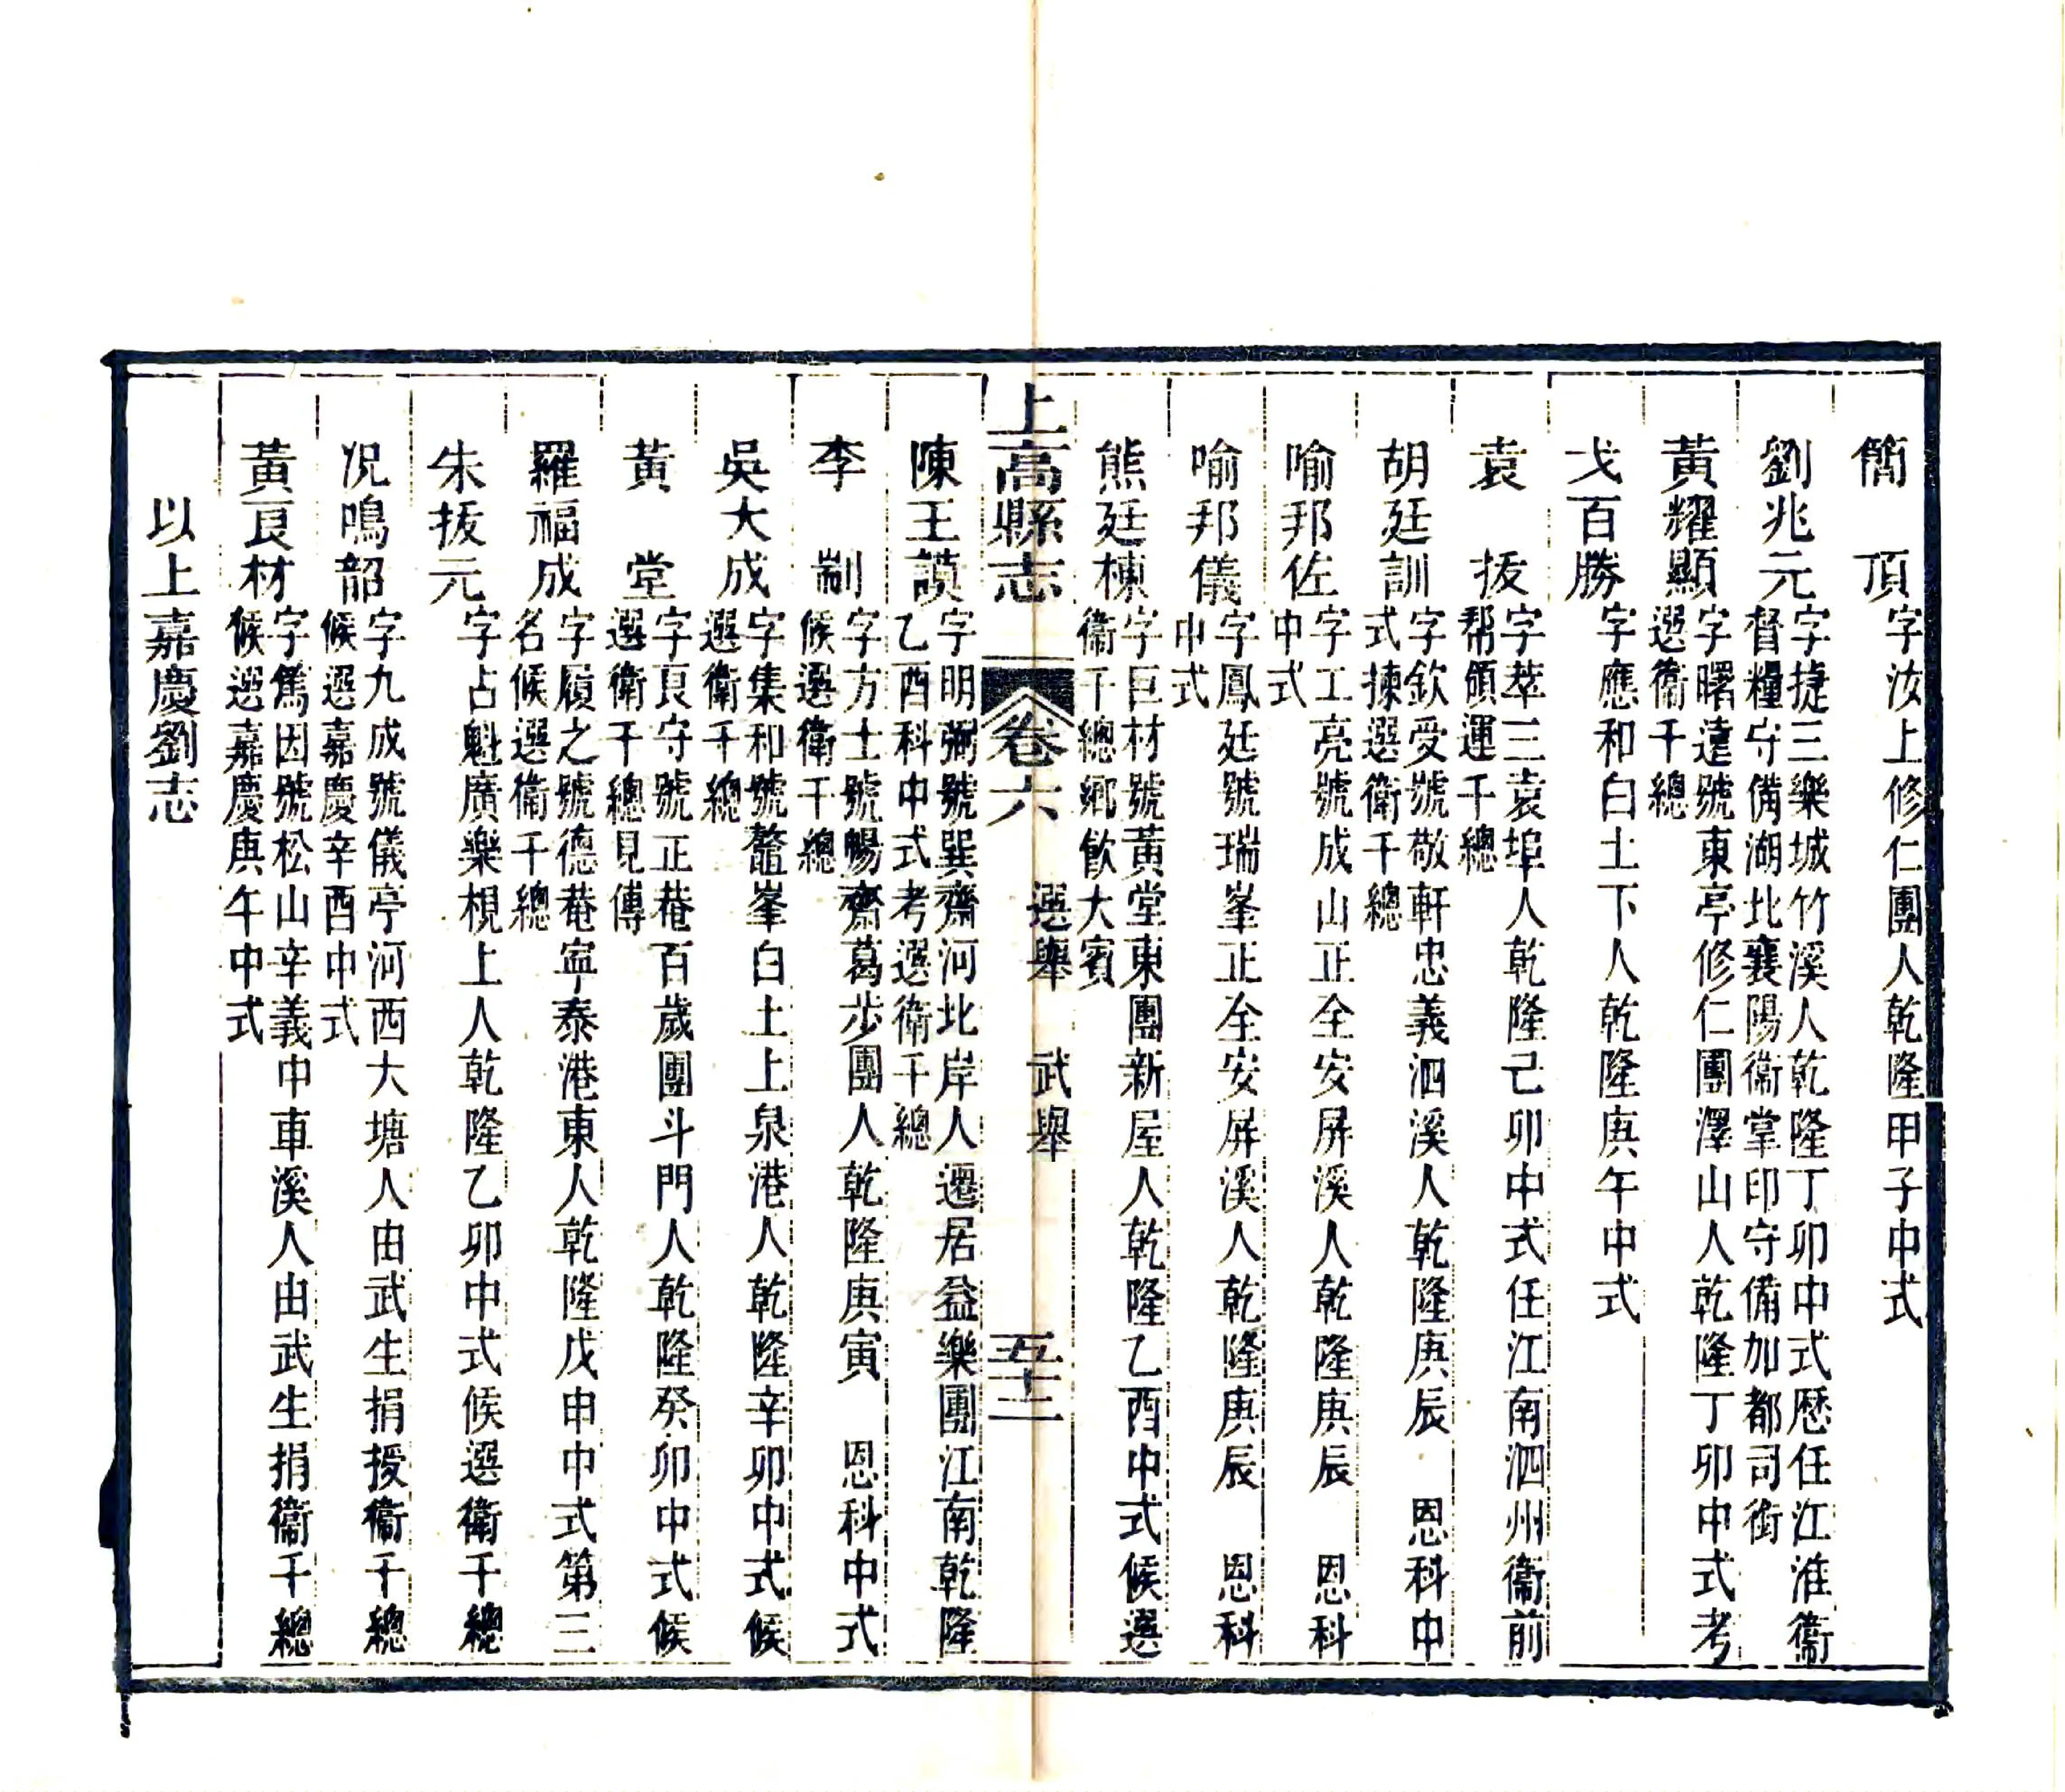 簡　頂字汝上修仁團人乾隆甲子中式
劉兆元字捷三樂城竹溪人乾隆丁卯中式歷任江淮衞
督糧守備湖北襄陽衞掌印守備加都司銜
黃耀顯字曙遠號東亭修仁團澤山人乾隆丁卯中式考
選衞千總
戈百勝字應和白土下人乾隆庚午中式
袁　拔字萃三袁埠人乾隆己卯中式任江南泗州衞前
幇領運千總
胡廷訓字欽受號敬軒忠義泗溪人乾隆庚辰　恩科中
式揀選衞千總
喻邦佐字工亮號成山正全安屏溪人乾隆庚辰　恩科
中式
喻邦儀字鳳廷號瑞峯正全安屏溪人乾隆庚辰　恩科
中式
熊廷棟字巨材號黃堂東團新屋人乾隆乙酉中式候選
衞千總鄉飲大賓
上高縣志　卷六　選舉　武舉　五十二
陳王謨字明弼號巽齋河北岸人遷居益樂團江南乾隆
乙酉科中式考選衞千總
李　制字方士號暢齋葛步團人乾隆庚寅　恩科中式
候選衞千總
吳大成字集和號鼇峯白土上泉港人乾隆辛卯中式候
選衞千總
黃　堂字艮守號正菴百歲團斗門人乾隆癸卯中式候
選衞千總見傳
羅福成字履之號德菴寧泰港東人乾隆戊申中式第三
名候選衞千總
朱拔元字占魁廣樂梘上人乾隆乙卯中式候選衞千總
况鳴韶字九成號儀亭河西大塘人由武生捐授衞千總
候選嘉慶辛酉中式
黃艮材字篤因號松山辛義中車溪人由武生捐衞千總
候選嘉慶庚午中式
以上嘉慶劉志